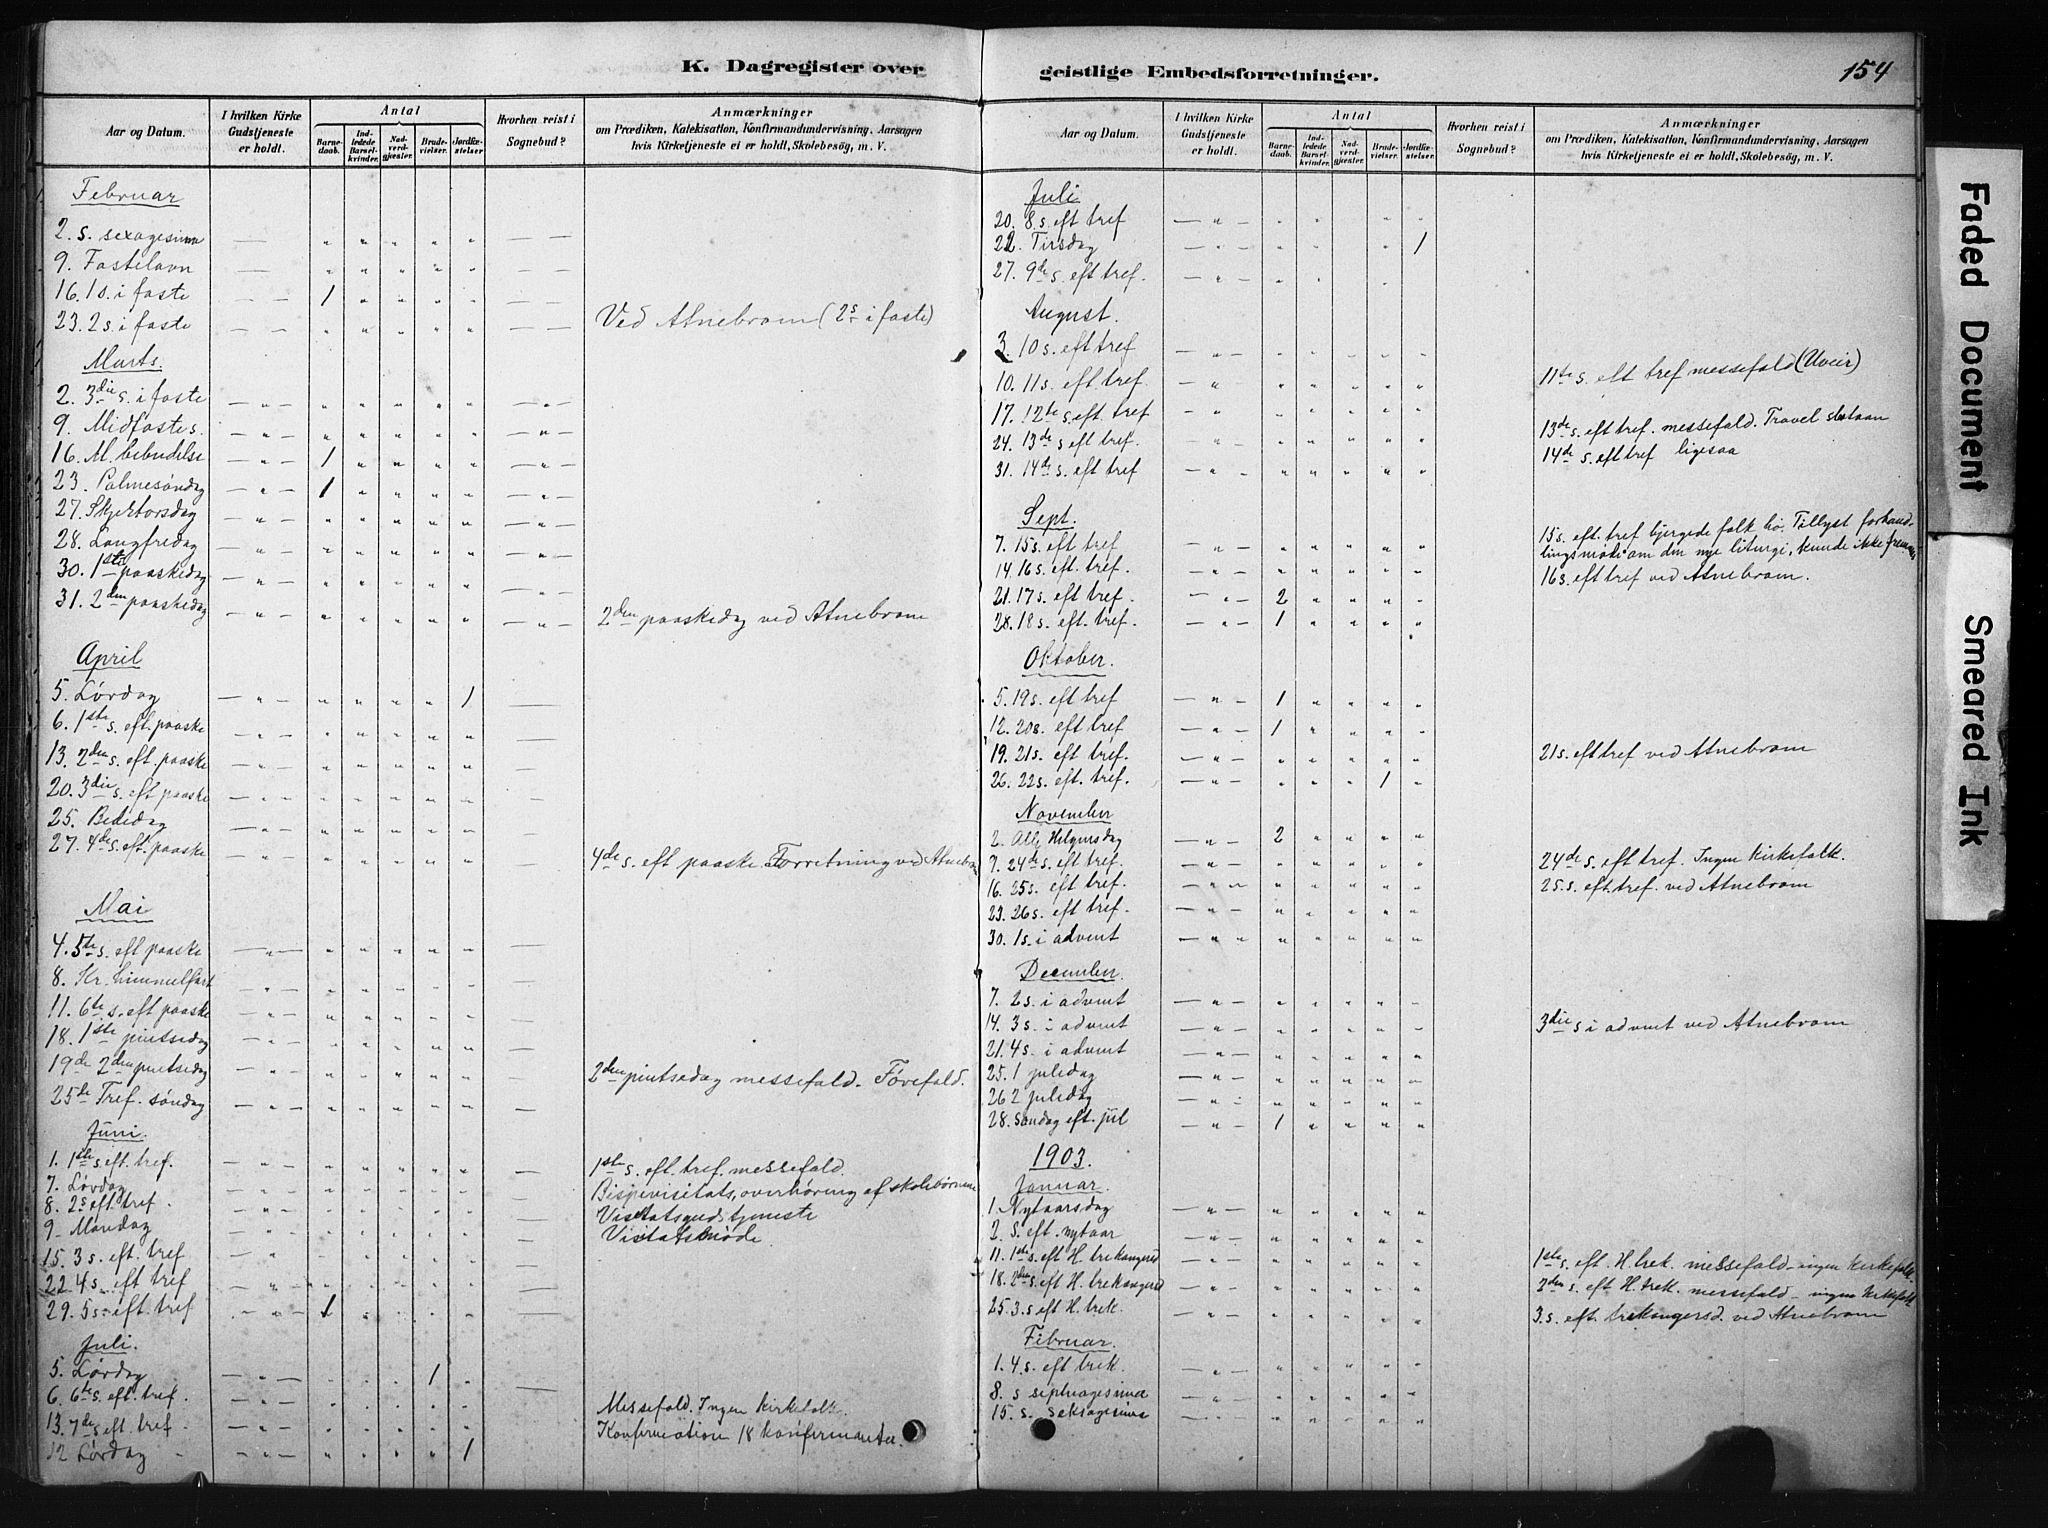 K. Dagregister over
Aar og Datum.
I hvilken Kirke Gudstjeneste er holdt.
Antal
Barnedaab.
Indledede Barselkvinder.
Nadverdgjester.
Brudevielser.
Jordfæstelser
Hvorhen reist i Sognebud?
Anmærkninger
om Prædiken, Katekisation, Konfirmandundervisning, Aarsagen
hvis Kirketjeneste ei er holdt, Skolebesøg, m. V.
Februar
2. s. sexagesima
9. Fastelavn
16. 1s. i faste 1
23. 2 s. i faste Ved Atnebrom (2s i faste)
Marts.
2. 3die s. i faste
9. Midfastes.
16. M. bebudelse 1
23. Palmesøndag 1
27. Skjertorsdag
28. Langfredag
30. 1ste paaskedag
31. 2den paaskedag 2den paaskedag ved Atnebrom
April
5. Lørdag 1
6. 1ste s. eft. paaske
13. 2den s. eft. paaske
20. 3die s. eft paaske
25. Bededag
27. 4de s. eft. paaske 4de s. eft paaske. Forretning ved Atnebrom
Mai
4. 5te s. eft paaske
8. Kr. himmelfart
11. 6te s. eft paaske
18. 1ste pintsedag
19de 2den pintsedag 2den pintsedag messefald. Førefald.
25de Tref. søndag
Juni.
1. 1ste s. eft. tref. 1ste s. eft. tref. messefald.
7. Lørdag Bispevisitats, overhøring af skolebørnene
8. 2s eft tref. Visitatsgudstjeneste
9. Mandag Visitatsmøde.
15. 3 s. eft. tref
22 4 s. eft tref
29. 5 s. eft. tref 1
Juli.
5. Lørdag 1
6. 6te s. eft. tref. Messefald. Ingen Kirkefolk.
13. 7de s eft tref Konfirmation 18 konfirmanter.
12 Lørdag 1
geistlige Embedsforretninger.
154
Aar og Datum.
I hvilken Kirke Gudstjeneste er holdt.
Antal
Barnedaab.
Indledede Barselkvinder.
Nadverdgjester.
Brudevielser.
Jordfæstelser.
Hvorhen reist i Sognebud?
Anmærkninger
om Prædiken, Katekisation, Konfirmandundervisning, Aarsagen
hvis Kirketjeneste ei er holdt, Skolebesøg, m. V.
Juli
20. 8 s. eft tref
22. Tirsdag 1
27. 9de s. eft tref.
August.
3. 10 s. eft tref
10. 11 s. eft tref. 11te s. eft tref messefald (Uveir)
17. 12te s. eft. tref
24. 13de s eft tref. 13de s. eft tref. messefald. Travel slotaan
31. 14de s. eft tref 14de s. eft tref ligesaa
Sept.
7. 15 s. eft tref 15 s. eft. tref bjergede folk hø. Tillyst forhand-
lingsmøde om den nye liturgi, kunde ikke
14. 16 s. eft. tref. 16 s. eft tref ved Atnebrom.
21. 17 s. eft tref. 2
28. 18 s. eft. tref. 1
Oktober.
5. 19 s. eft tref 1
12. 20 s. eft tref 1
19. 21 s. eft tref. 21 s. eft tref ved Atnebrom
26. 22 s. eft. tref. 1
November
2. Alle Helgensdag 2
9. 24de s. eft tref. 24de s. eft tref. Ingen Kirkefolk.
16. 25 s. eft tref. 25. s. eft. tref. ved Atnebrom
23. 26 s. eft tref.
30. 1 s. i advent
December.
7. 2 s. i advent
14. 3 s. i advent 3die s i advent ved Atnebrom
21. 4 s. i advent
25. 1 juledag
26 2 juledag
28. Søndag eft. jul 1
1903.
Januar.
1. Nytaarsdag
2. S. eft. nytaar
11. 1ste s. eft H. trekongersd 1ste s. eft. H. trek. messefald - ingen kirkefolk.
18. 2den s. eft H. trekongersd 2den s. eft H. trek. messefald - ingen kirkefolk
25. 3. s eft H. trek. 3. s. eft. trekongersd. ved Atnebrom
Februar.
1. 4. s. eft trek.
8. s septuagesima
15. s. seksagesima
Faded Document
Smeared Ink